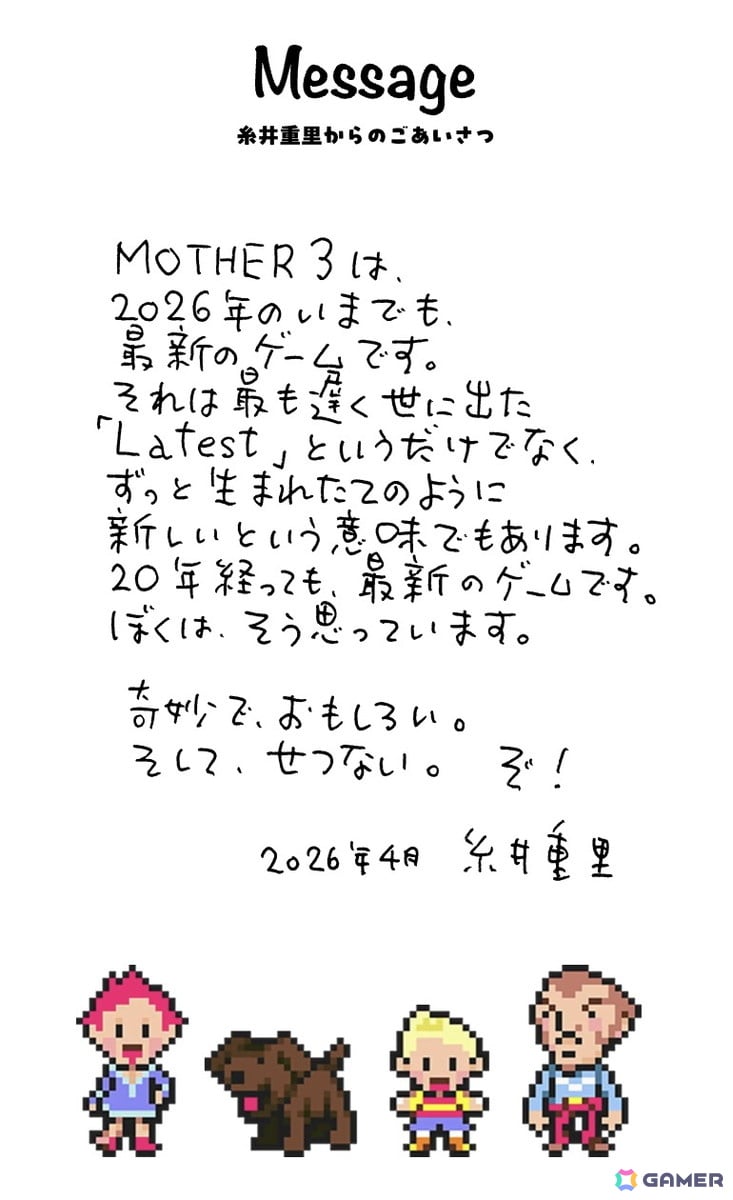 Message
糸井重里からのごあいさつ
MOTHER 3 は、
2026年のいまでも、
最新のゲームです。
それは最も遅く世に出た
「Latest」というだけでなく、
ずっと生まれたてのように
新しいという意味でもあります。
20年経っても、最新のゲームです。
ぼくは、そう思っています。
奇妙で、おもしろい。
そして、せつない。 ぞ!
2026年4月 糸井重里
GAMER